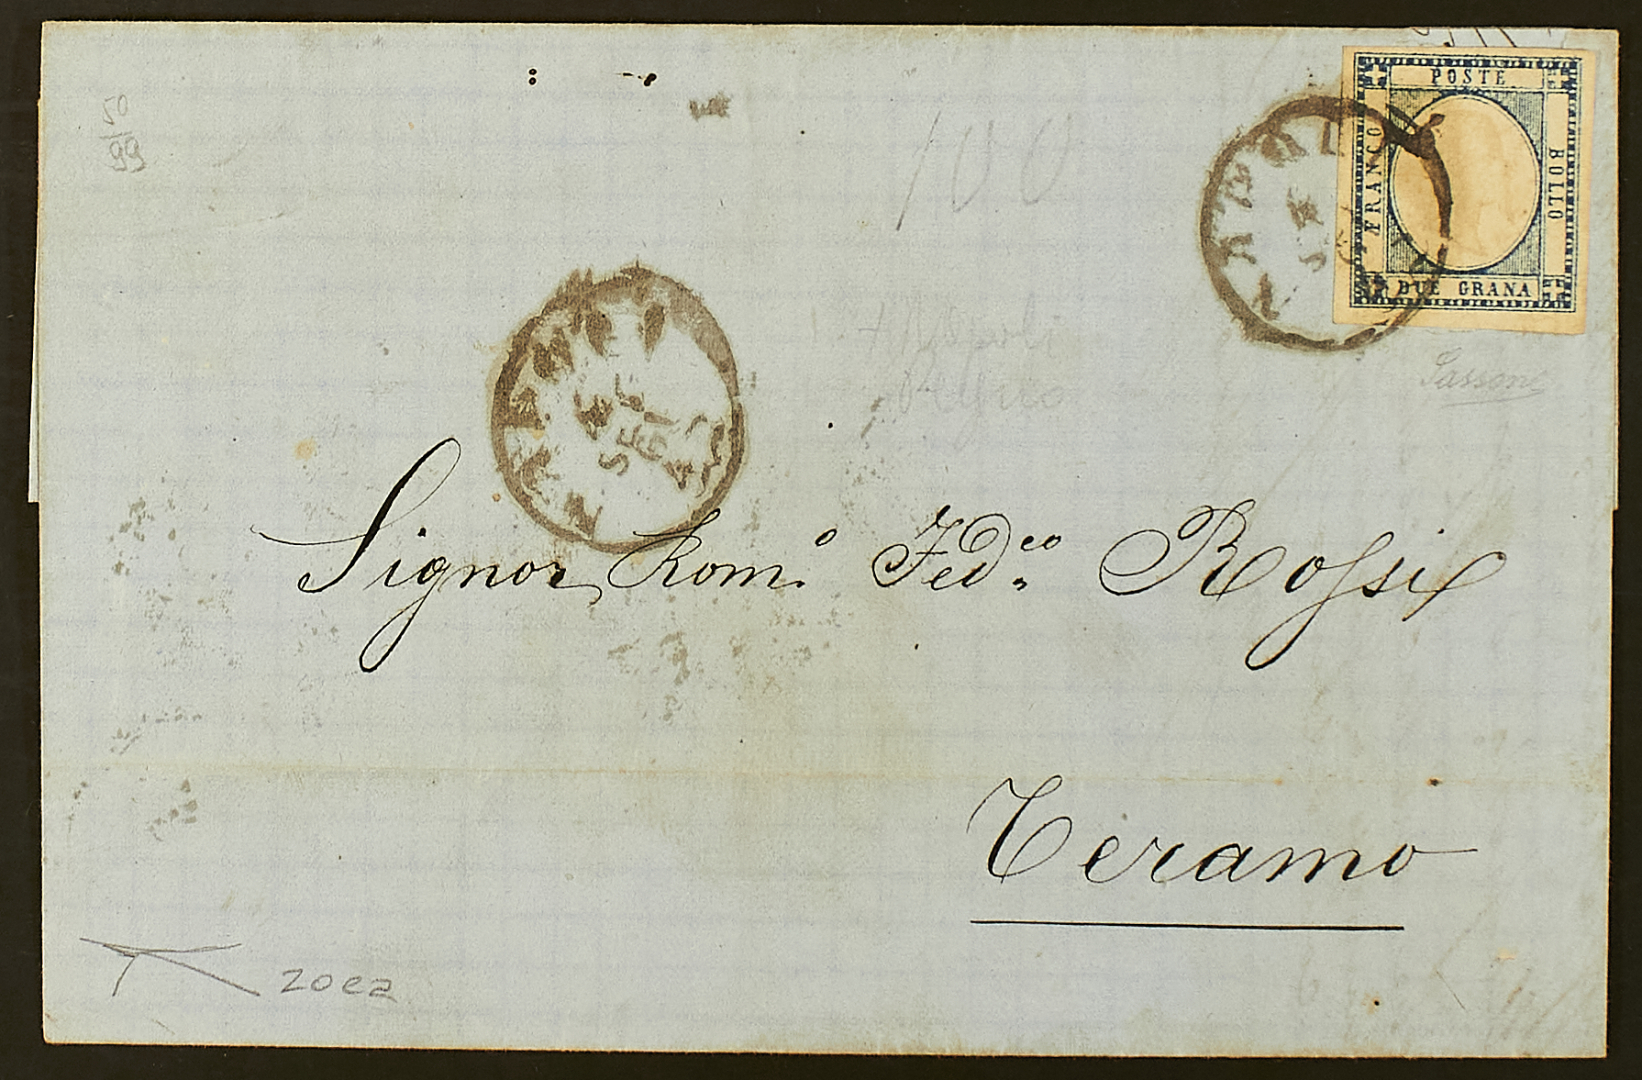 50
99
100
POSTE
FRANCO
BOLLO
DUE GRANA
NAPOLI
SET
61
Napoli
Signor Rom.º Fed.co Rossi
Teramo
20ea